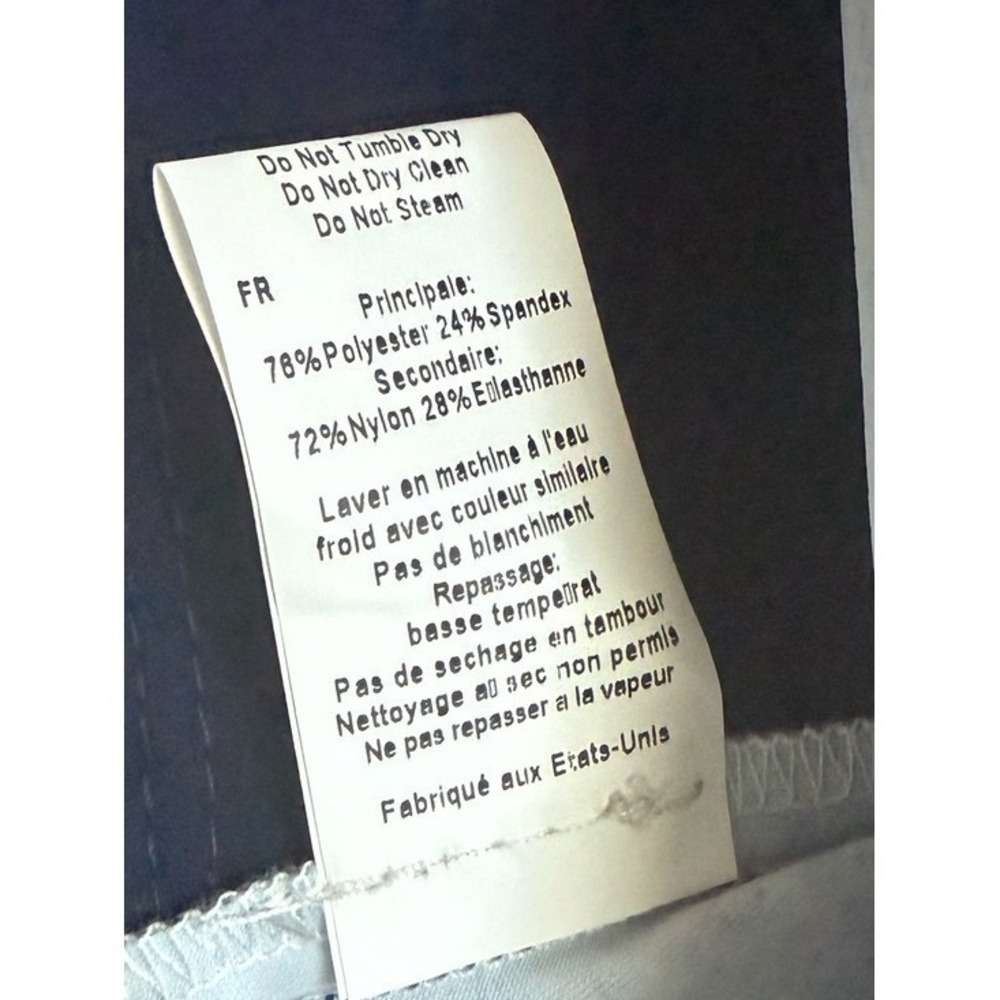 Do Not Tumble Dry
Do Not Dry Clean
Do Not Steam
FR
Principale:
76%Polyester 24%Spandex
Secondaire:
72%Nylon 28%E▯lasthanne
Laver en machine à l'eau
froid avec couleur similaire
Pas de blanchiment
Repassage:
basse tempe▯rat
Pas de sechage en tambour
Nettoyage a▯ sec non permis
Ne pas repasser a la vapeur
Fabriqué aux Etats-Unis